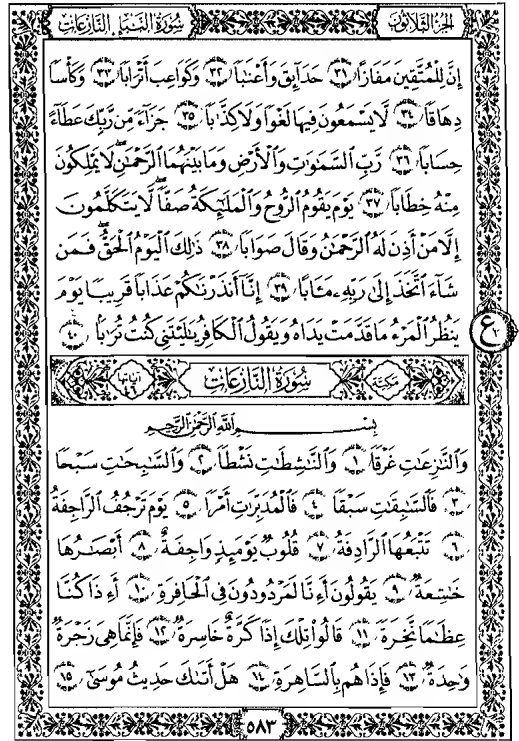 الجزء الثلاثون
سورة النبإ النازعات
إِنَّ لِلْمُتَّقِينَ مَفَازًا ٣١ حَدَآئِقَ وَأَعْنَٰبًا ٣٢ وَكَوَاعِبَ أَتْرَابًا ٣٣ وَكَأْسًا
دِهَاقًا ٣٤ لَّا يَسْمَعُونَ فِيهَا لَغْوًا وَلَا كِذَّٰبًا ٣٥ جَزَآءً مِّن رَّبِّكَ عَطَآءً
حِسَابًا ٣٦ رَّبِّ ٱلسَّمَٰوَٰتِ وَٱلْأَرْضِ وَمَا بَيْنَهُمَا ٱلرَّحْمَٰنِ ۖ لَا يَمْلِكُونَ
مِنْهُ خِطَابًا ٣٧ يَوْمَ يَقُومُ ٱلرُّوحُ وَٱلْمَلَٰٓئِكَةُ صَفًّا ۖ لَّا يَتَكَلَّمُونَ
إِلَّا مَنْ أَذِنَ لَهُ ٱلرَّحْمَٰنُ وَقَالَ صَوَابًا ٣٨ ذَٰلِكَ ٱلْيَوْمُ ٱلْحَقُّ ۖ فَمَن
شَآءَ ٱتَّخَذَ إِلَىٰ رَبِّهِۦ مَـَٔابًا ٣٩ إِنَّآ أَنذَرْنَٰكُمْ عَذَابًا قَرِيبًا يَوْمَ
يَنظُرُ ٱلْمَرْءُ مَا قَدَّمَتْ يَدَاهُ وَيَقُولُ ٱلْكَافِرُ يَٰلَيْتَنِى كُنتُ تُرَٰبًۢا ٤٠
ع ٢
مكية سورة النازعات آياتها ٤٦
بِسْمِ ٱللَّهِ ٱلرَّحْمَٰنِ ٱلرَّحِيمِ
وَٱلنَّٰزِعَٰتِ غَرْقًا ١ وَٱلنَّٰشِطَٰتِ نَشْطًا ٢ وَٱلسَّٰبِحَٰتِ سَبْحًا
٣ فَٱلسَّٰبِقَٰتِ سَبْقًا ٤ فَٱلْمُدَبِّرَٰتِ أَمْرًا ٥ يَوْمَ تَرْجُفُ ٱلرَّاجِفَةُ
٦ تَتْبَعُهَا ٱلرَّادِفَةُ ٧ قُلُوبٌ يَوْمَئِذٍ وَاجِفَةٌ ٨ أَبْصَٰرُهَا
خَٰشِعَةٌ ٩ يَقُولُونَ أَءِنَّا لَمَرْدُودُونَ فِى ٱلْحَافِرَةِ ١٠ أَءِذَا كُنَّا
عِظَٰمًا نَّخِرَةً ١١ قَالُوا۟ تِلْكَ إِذًا كَرَّةٌ خَاسِرَةٌ ١٢ فَإِنَّمَا هِىَ زَجْرَةٌ
وَٰحِدَةٌ ١٣ فَإِذَا هُم بِٱلسَّاهِرَةِ ١٤ هَلْ أَتَىٰكَ حَدِيثُ مُوسَىٰٓ ١٥
٥٨٣